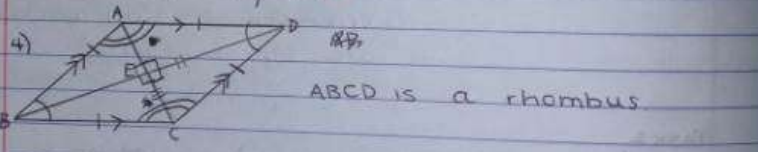 4)
A
D
E
B
C
ABCD is a rhombus.